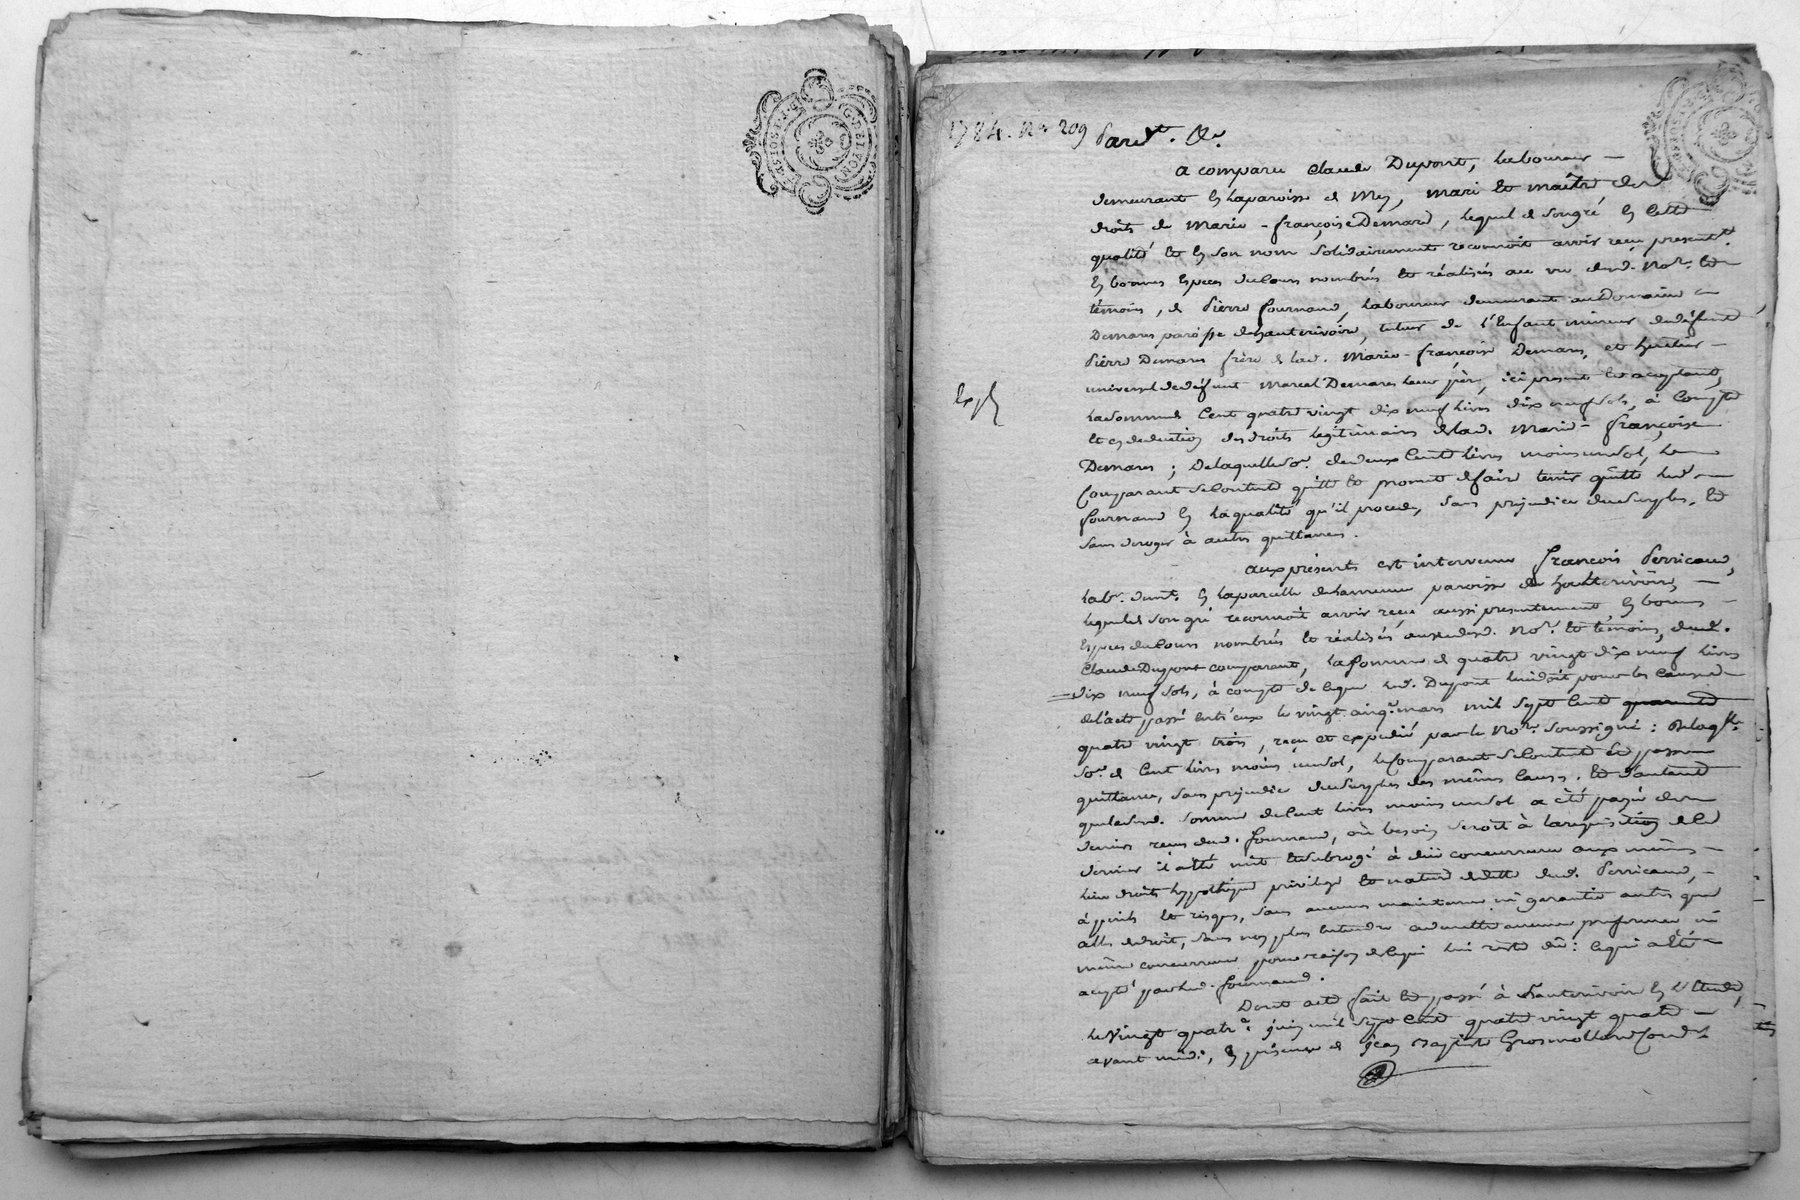 G. DE LYON
1784. No 209
Pardt. &c.
a comparu Claude Dupont, laboureur
demeurant en la paroisse de Mey, mari et maître des
droits de Marie-françoise Demare, lequel de son gré en cette
qualité et en son nom solidairement reconnoit avoir reçu presentt.
en bonnes especes du cours nombrés et réalisés au vu dud. Nore. et
témoins, de Pierre fournand, laboureur demeurant au Domaine
Demares paroisse de hauterivoire, tuteur de l'Enfant mineur de défunt
Pierre Demares frère de lad. Marie-françoise Demares, et heritier
universel de défunt Marcel Demares leur père, ici present et acceptant,
la somme de Cent quatre vingt dix neuf livres dix neuf sols, à Compte
et en deduction des droits legitimaires de lad. Marie-françoise
Demares ; De laquelle so. de deux Cents livres moins un sol, le
Comparant se contente quitte et promet de faire tenir quitte led.
fournand en la qualité qu'il procede, sans prejudice du surplus, et
sans deroger à autres quittances.
aux présents est intervenu françois Perricaud,
labr. demt. en la parcelle de paroisse de hauterivoire,
lequel de son gré reconnoit avoir reçu aussi presentement en bonnes
Especes du Cours nombrés et réalisés aud. Nore. et témoins, dud.
Claude Dupont comparant, la somme de quatre vingt dix neuf livres
dix neuf sols, à compte de ce que led. Dupont lui doit pour les causes
de l'acte passé entr'eux le vingt cinq. mars mil sept cent quarante
quatre vingt trois, reçu et expedié par le Nore. soussigné : De laqlle.
so. de Cent livres moins un sol, le Comparant se contente et passe
quittance, sans prejudice du surplus des mêmes causes. Et d'autant
que lad. somme de Cent livres moins un sol a été payée des
deniers reçus dud. fournand, où besoin seroit à la requisition de ce
dernier il a été mis et subrogé à due concurrence aux mêmes
lieu droits hypothèque privilege et nature de dette dud. Perricaud,
à perils et risques, sans aucune maintenue ni garantie autre que
celle de droit, sans non plus entendre admettre aucune preference ni
même concurrence pour raison de ce qui lui reste dû : ce qui a été
accepté par led. fournand.
Dont acte fait et passé à hauterivoire en l'Etude,
le vingt quatre. juin mil sept cent quatre vingt quatre
avant midi, en présence de jean Baptiste Grosmolland Cord.